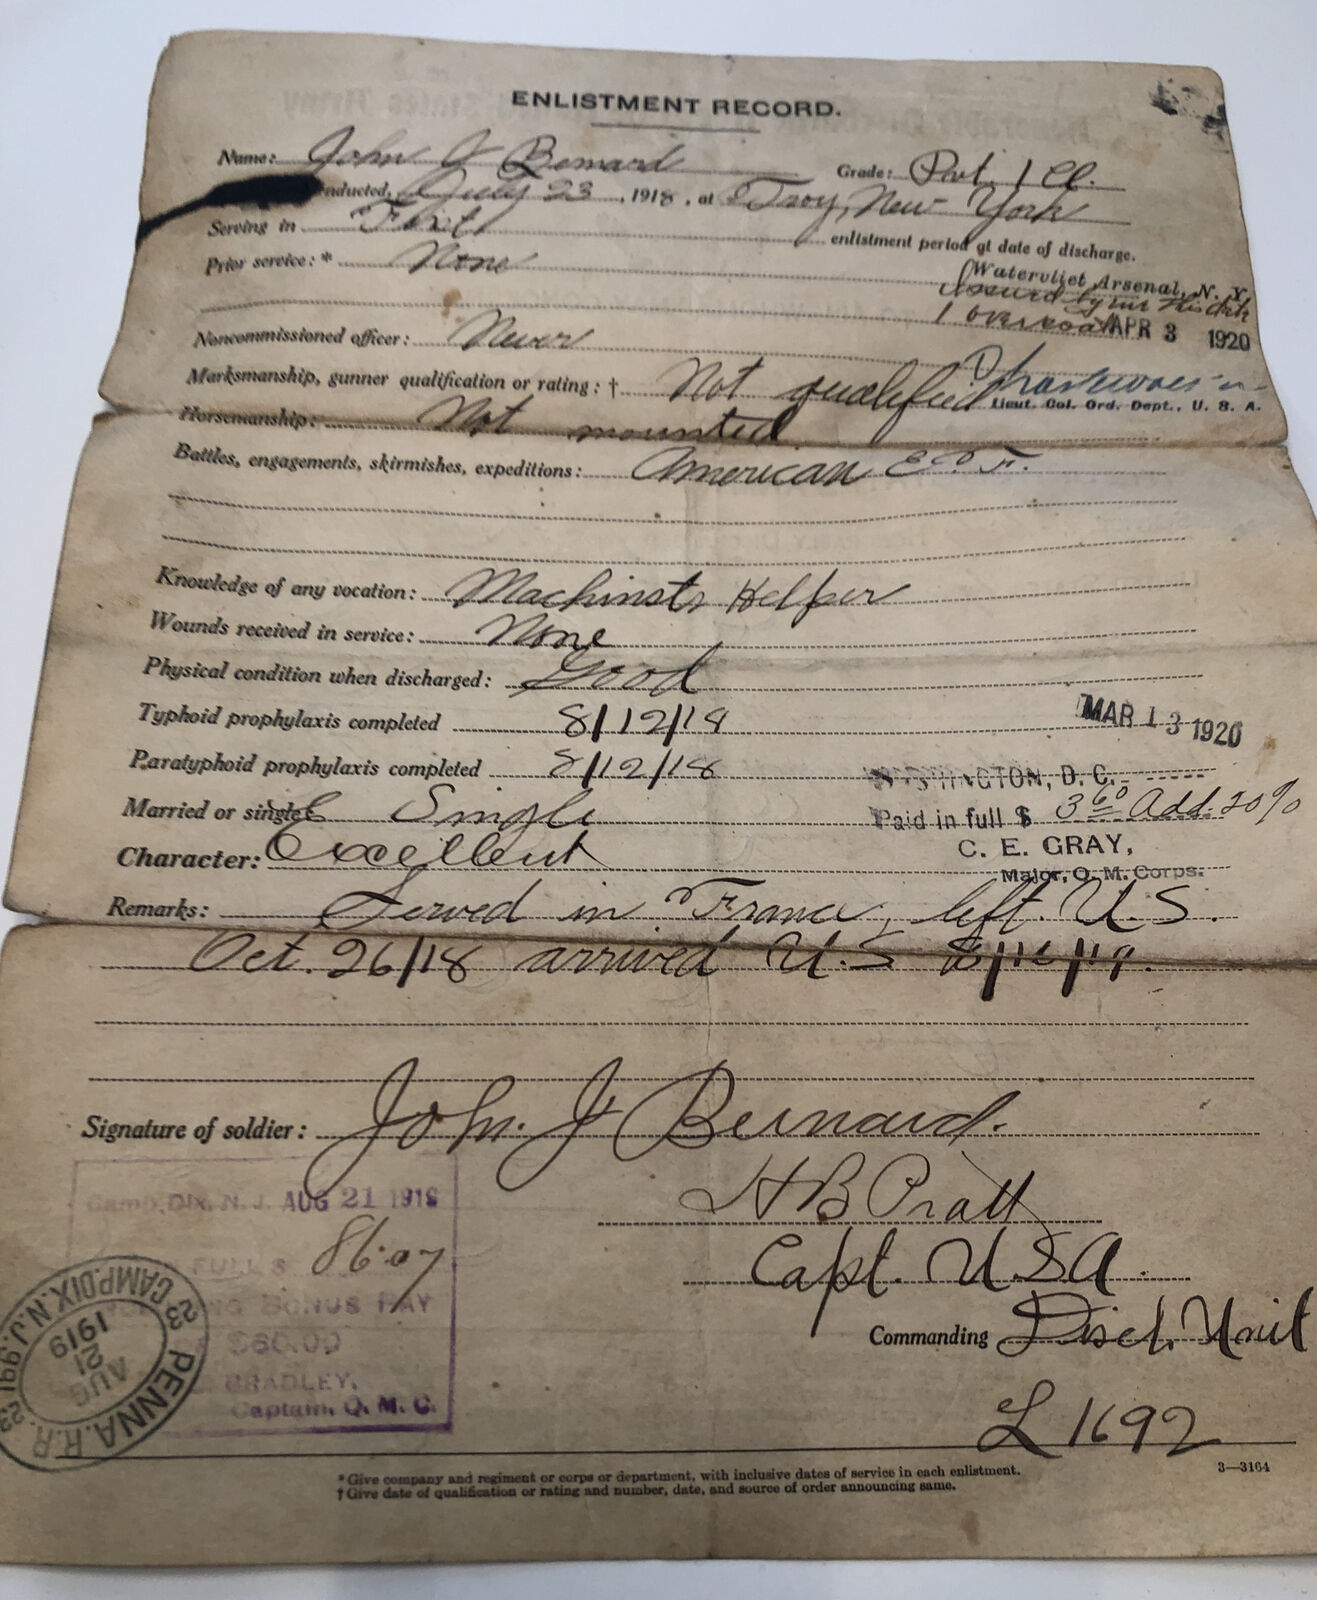 ENLISTMENT RECORD.
Name: John J Bernard Grade: Pvt. 1 Cl.
nducted, July 23, 1918, at Troy, New York
Serving in First enlistment period at date of discharge.
Prior service:* None
Watervliet Arsenal, N. Y.
Issued by me this date
1 overcoat APR 3 1920
Noncommissioned officer: Never
Marksmanship, gunner qualification or rating:† Not qualified
Lieut. Col. Ord. Dept., U. S. A.
Horsemanship: Not mounted
Battles, engagements, skirmishes, expeditions: American E. F.
Knowledge of any vocation: Machinsts Helper
Wounds received in service: None
Physical condition when discharged: Good
Typhoid prophylaxis completed 8/12/18
MAR 13 1920
Paratyphoid prophylaxis completed 8/12/18
WASHINGTON, D. C.
Married or single Single
Paid in full $ 3 60 Add. 20%
C. E. GRAY,
Character: Excellent
Major, Q. M. Corps.
Remarks: Served in France, left U.S.
Oct. 26/18 arrived U.S 8/16/19.
Signature of soldier: John. J Bernard.
H B Pratt
Camp Dix, N. J. AUG 21 1919
FULL $ 86.07
Capt. U.S.A.
BONUS PAY
$60.00
Commanding Disch. Unit
BRADLEY,
Captain, Q. M. C.
PENNA. R.R. CAMP DIX. N.J.
AUG 21 1919
L 1692
3—3164
*Give company and regiment or corps or department, with inclusive dates of service in each enlistment.
†Give date of qualification or rating and number, date, and source of order announcing same.